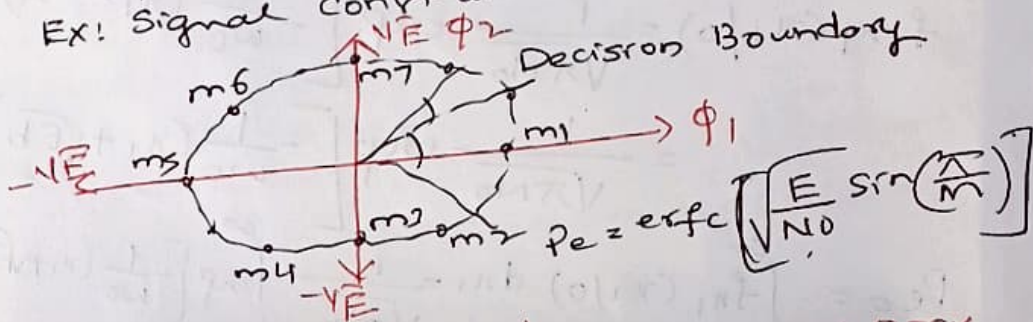 Ex: Signal
√E φ2
Decision Boundory
m6
m7
m1
φ1
-√E
m5
m3
m2
m4
-√E
Pe = erfc [√E/N0 sin(π/m)]